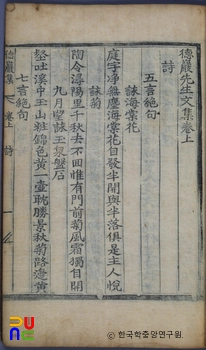 德巖先生文集卷上
詩
五言絶句
詠海棠花
庭宇淨無塵海棠花自發半開與半落俱是主人悅
詠菊
陶令潯陽里千秋去不回惟有門前菊風霜獨自開
九月望詠玉泉盤石
壑吐溪中玉山粧錦色黃一壺耽勝景秋菊路邊黃
七言絶句
德巖集 卷上 詩 一
한국학중앙연구원